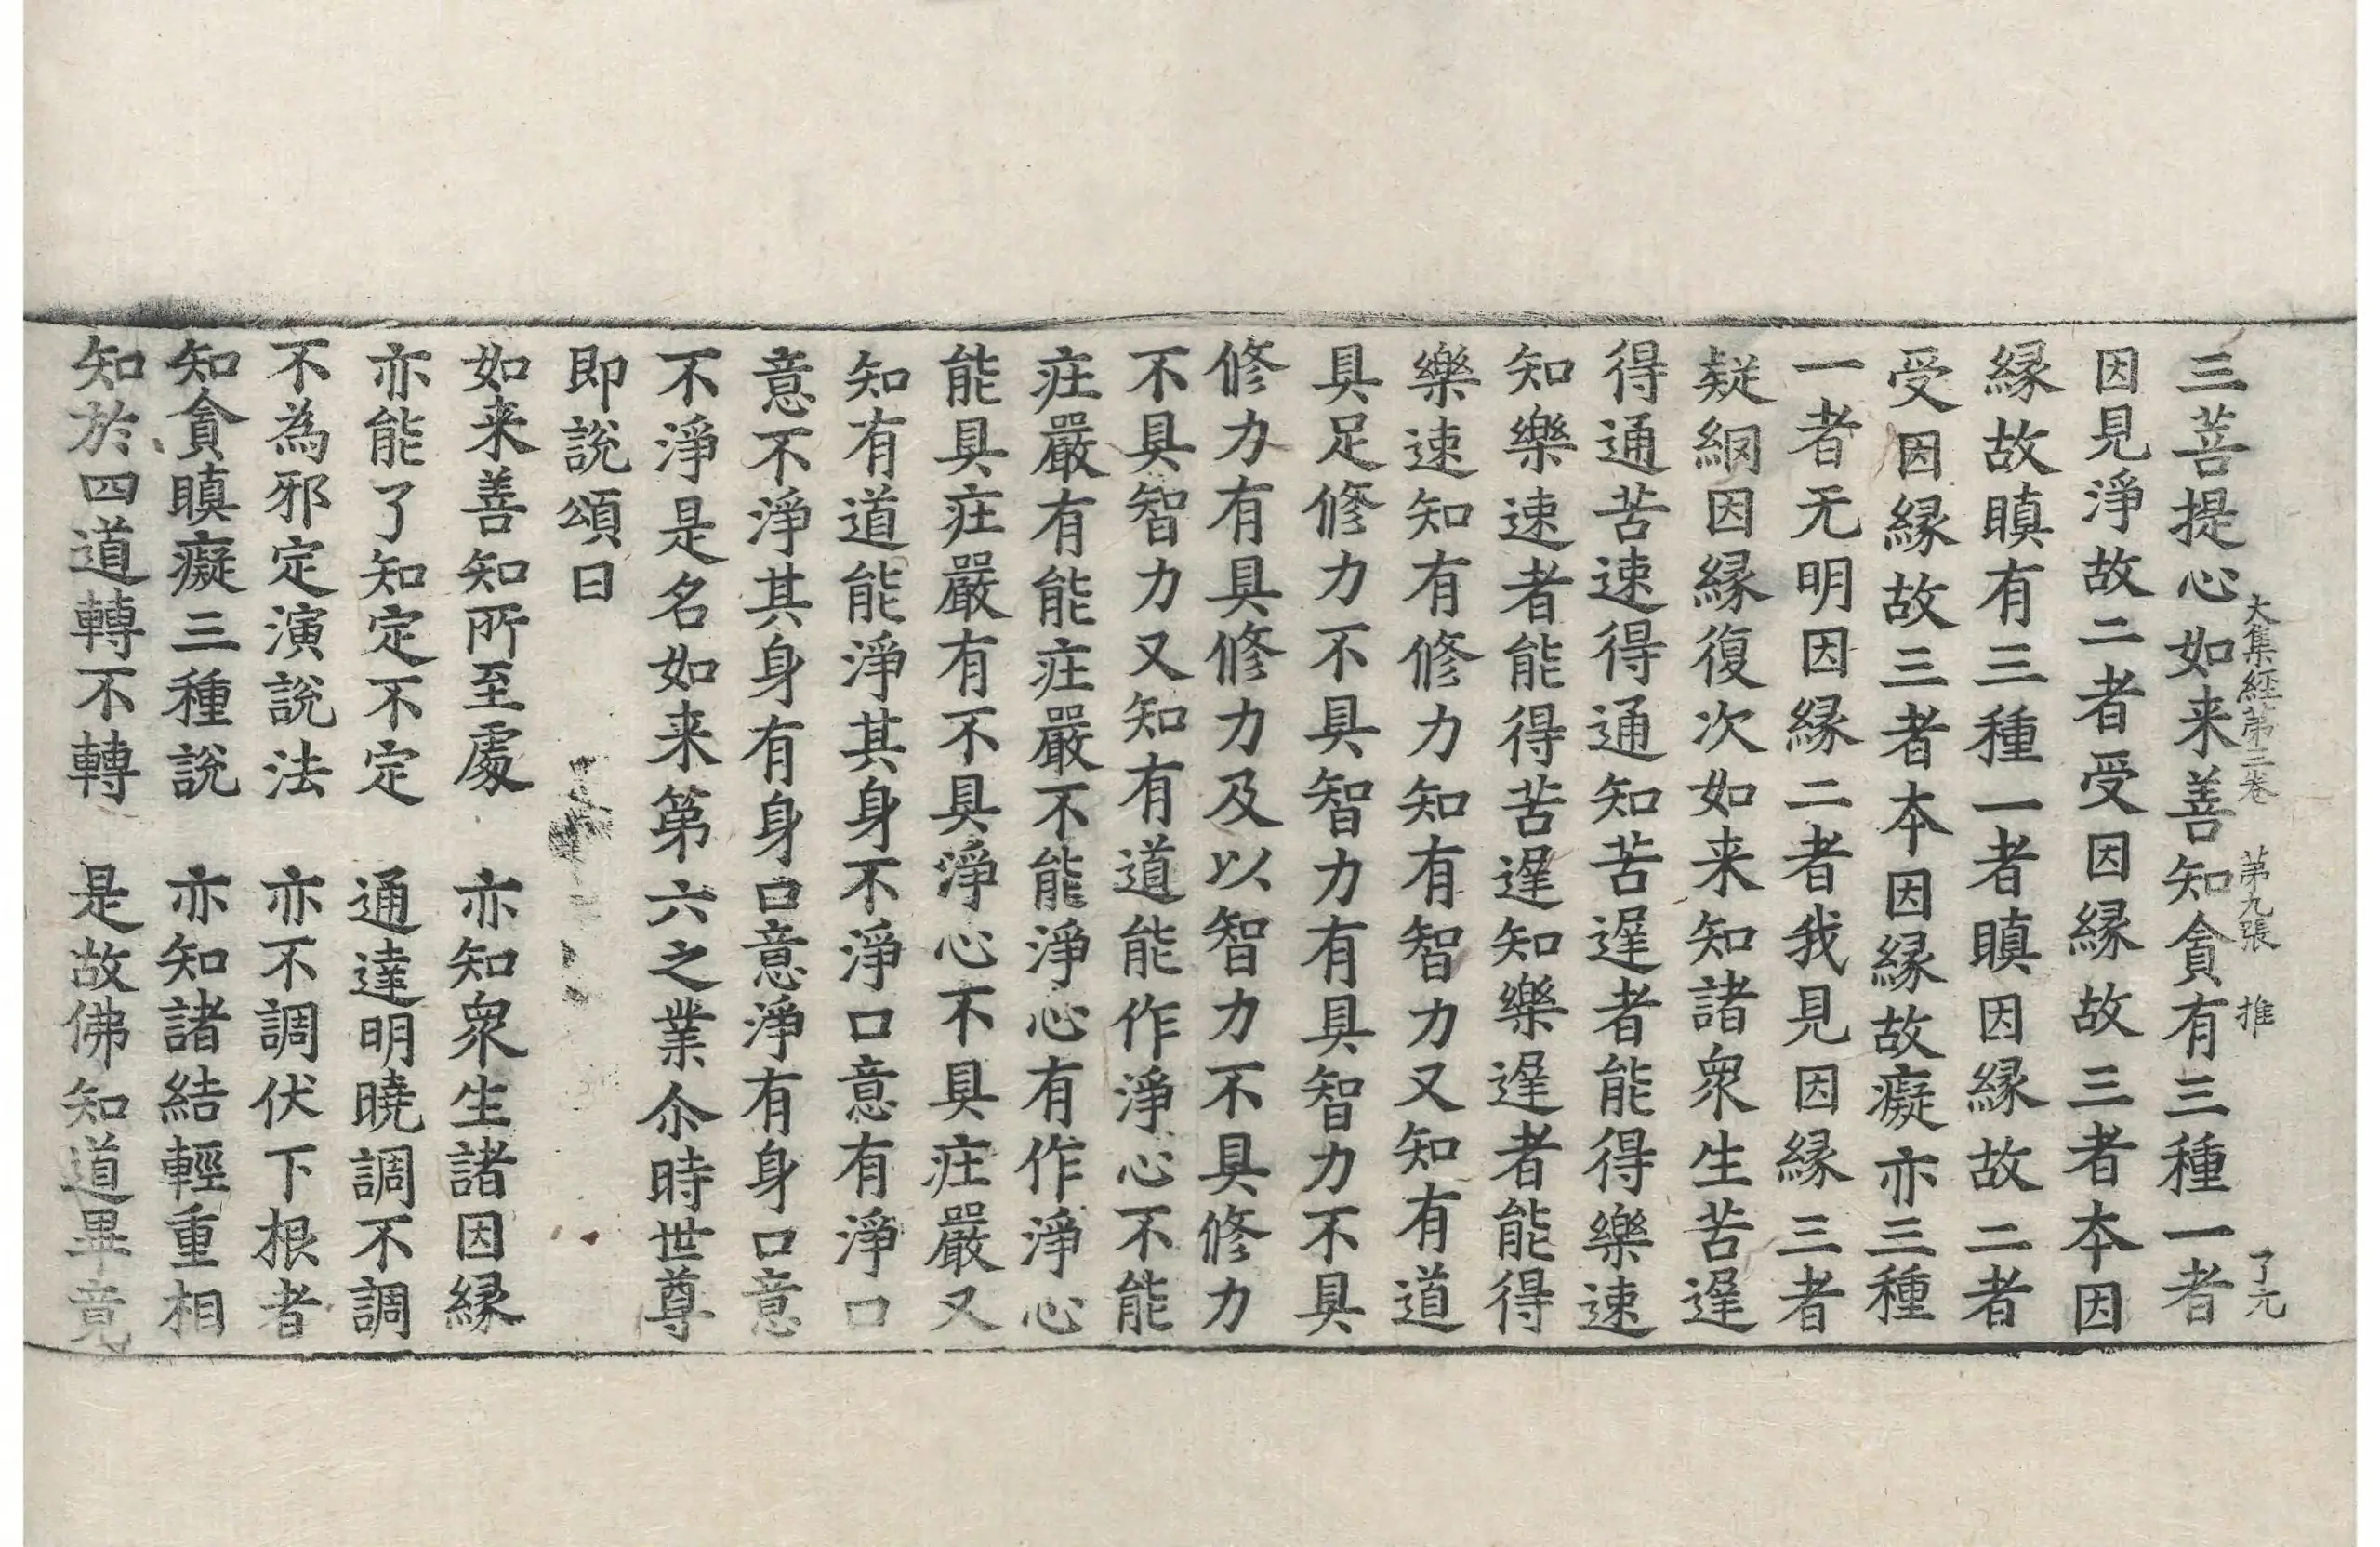 大集經第三卷　第九張　推　了元
三菩提心如来善知貪有三種一者
因見淨故二者受因縁故三者本因
縁故瞋有三種一者瞋因縁故二者
受因縁故三者本因縁故癡亦三種
一者无明因縁二者我見因縁三者
疑網因縁復次如来知諸衆生苦遟
得通苦速得通知苦遟者能得樂速
知樂速者能得苦遟知樂遟者能得
樂速知有修力知有智力又知有道
具足修力不具智力有具智力不具
修力有具修力及以智力不具修力
不具智力又知有道能作淨心不能
庄嚴有能庄嚴不能淨心有作淨心
能具庄嚴有不具淨心不具庄嚴又
知有道能淨其身不淨口意有淨口
意不淨其身有身口意淨有身口意
不淨是名如来第六之業尒時世尊
即說頌曰
如来善知所至處　亦知衆生諸因縁
亦能了知定不定　通達明曉調不調
不為邪定演說法　亦不調伏下根者
知貪瞋癡三種說　亦知諸結輕重相
知於四道轉不轉　是故佛知道畢竟